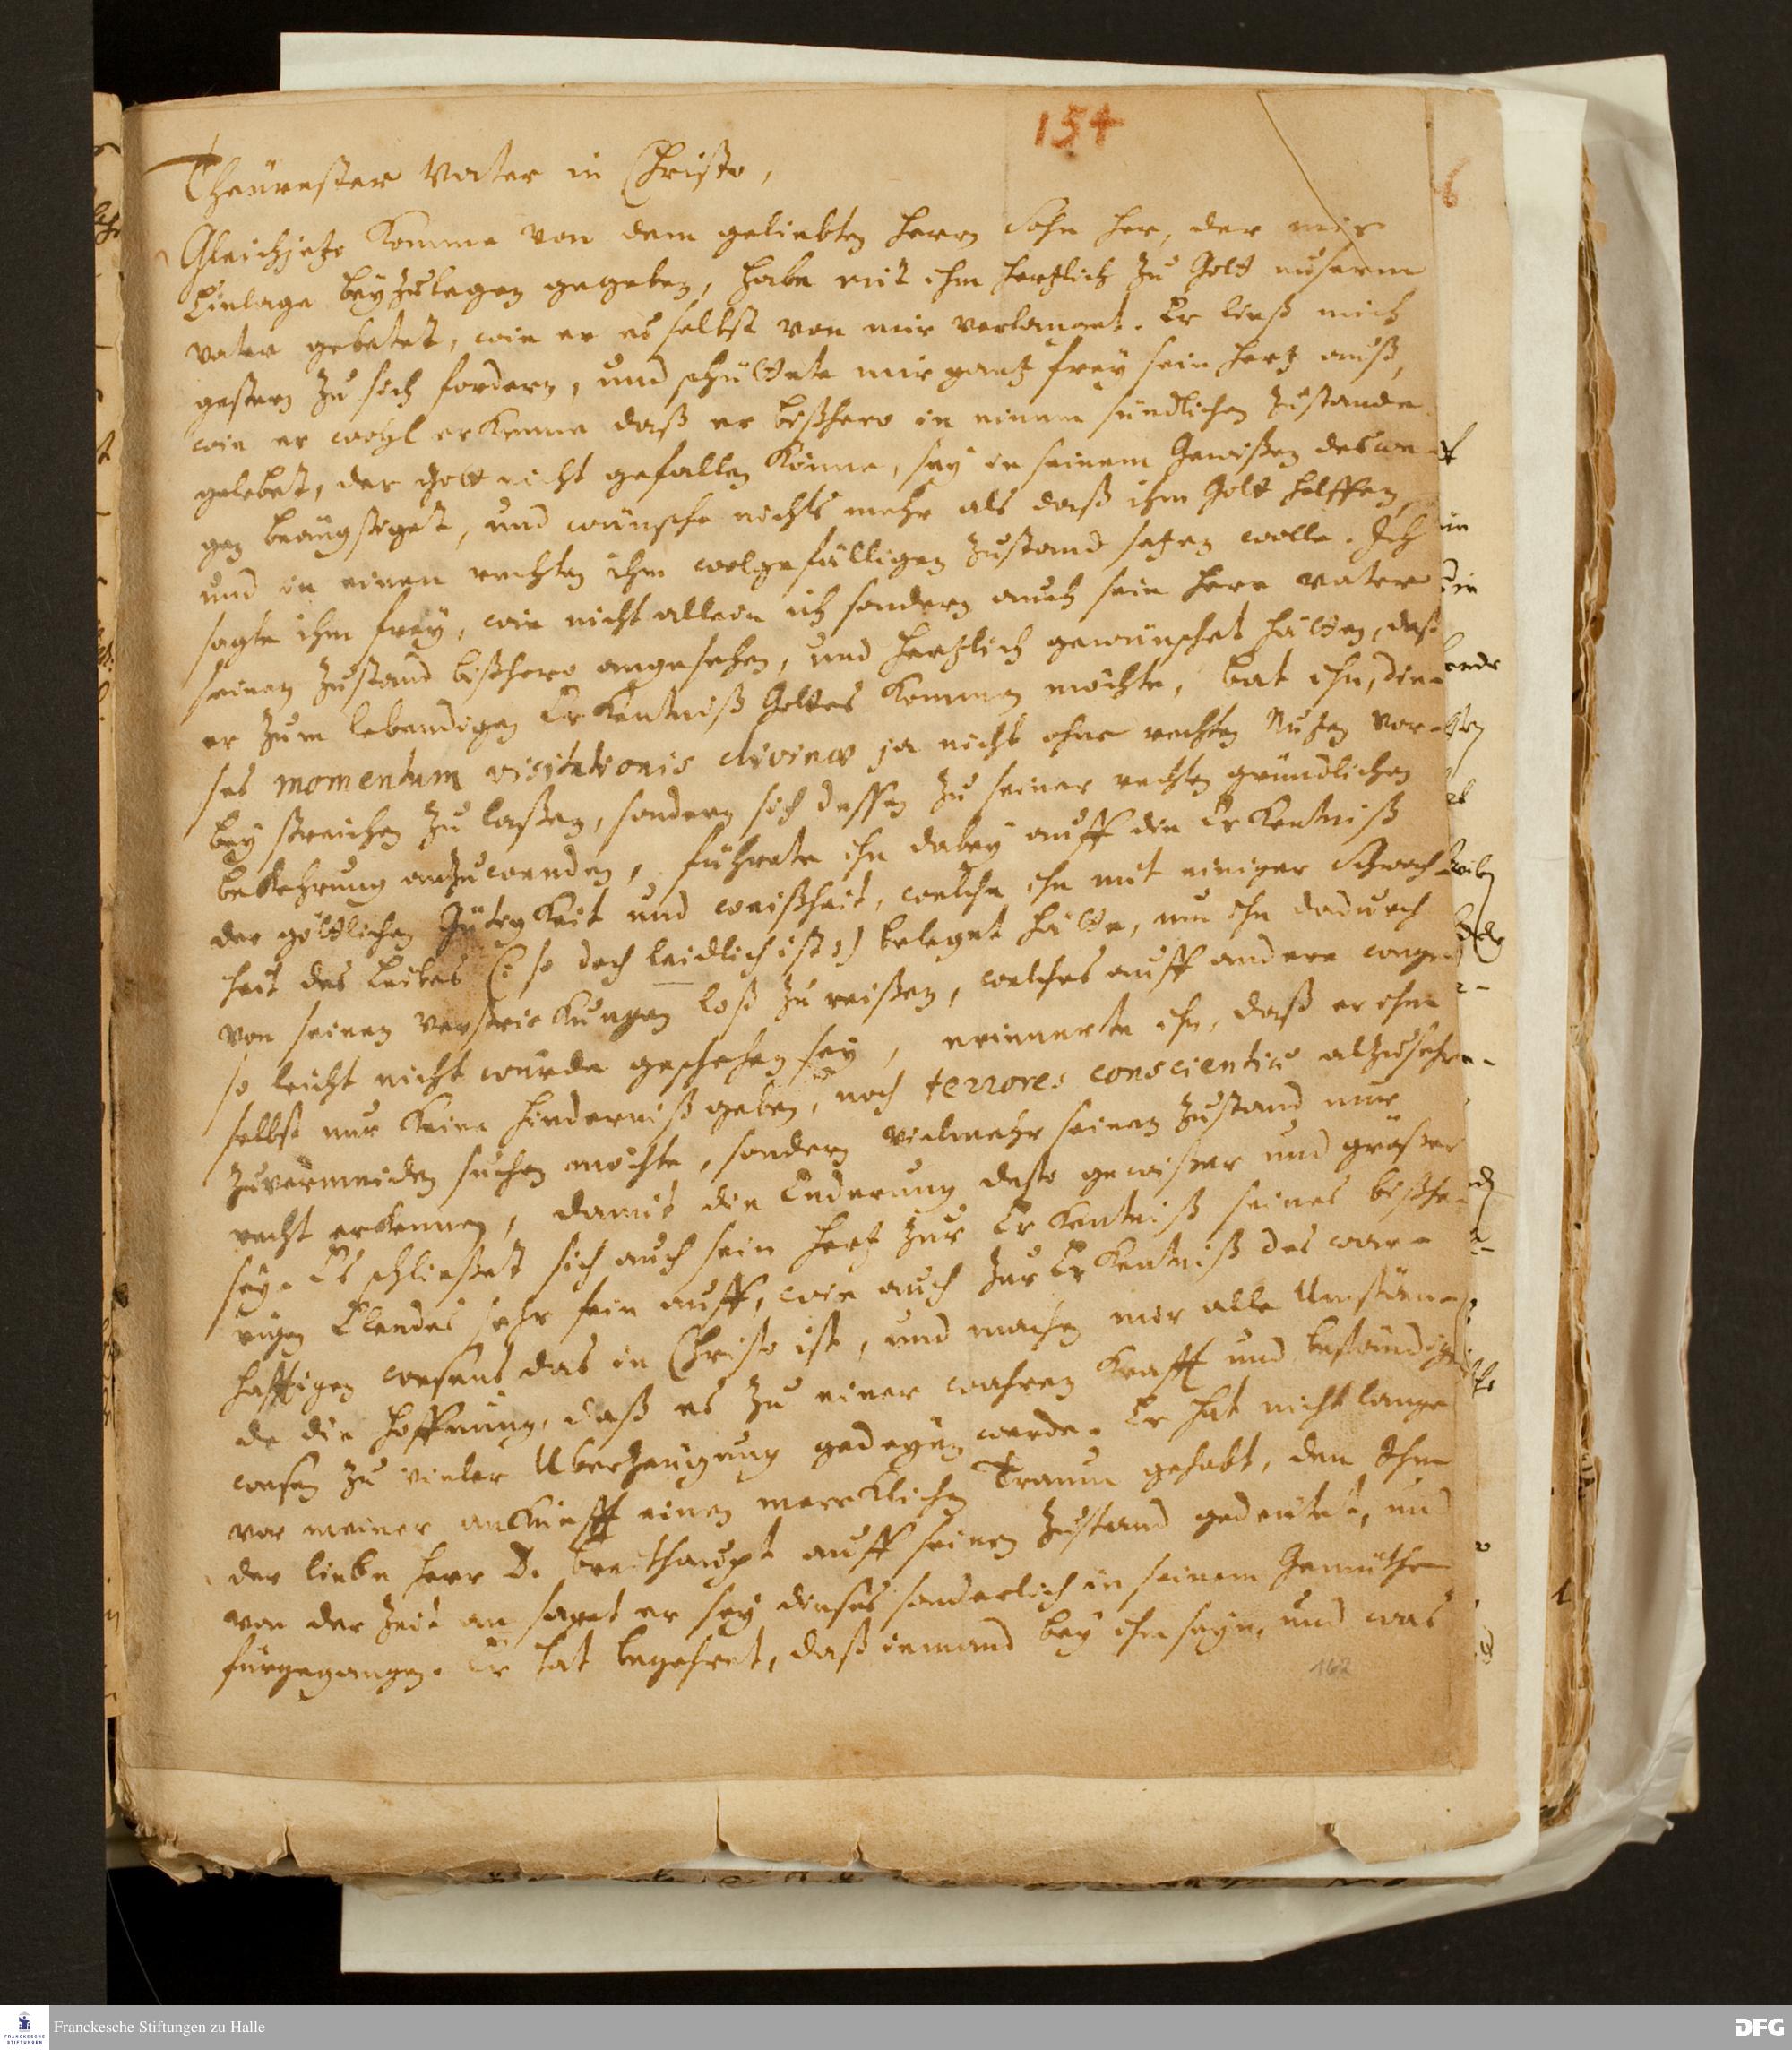 154
Theürester Vater in Christo,
Gleichjetzo komme von dem geliebten Herrn Sohn her, der mir
Einlage beyzulegen gegeben, habe mit ihm hertzlich zu Gott unserm
Vater gebetet, wie er es selbst von mir verlanget. Er ließ mich
gestern zu sich fordern, und schüttete mir gantz frey sein Hertz auß,
wie er wohl erkenne daß er bißhero in einem sündlichen Zustande
gelebet, der Gott nicht gefallen könne, sey in seinem Gewißen deswe-
gen beängstiget, und wünsche nichts mehr als daß ihm Gott helffen,
und in einen rechten ihm wolgefälligen Zustand setzen wolle. Ich
sagte ihm frey, wie nicht allein ich sondern auch sein Herr Vater
seinen Zustand bißhero angesehen, und hertzlich gewünschet hätten, daß
er zum lebendigen Erkentniß Gottes kommen möchte, bat ihn, die-
ses momentum visitationis divinae ja nicht ohne rechten Nutzen vor-
bey streichen zu laßen, sondern sich dessen zu seiner rechten gründlichen
Bekehrung anzuwenden, führete ihn dabey auff die Erkentniß
der göttlichen Gütigkeit und Weißheit, welche ihn mit einiger Schwach-
heit des Leibes (: so doch leidlich ist :) beleget hätte, um ihn dadurch
von seinen Verstrickungen loß zu reißen, welches auff andere Wege
so leicht nicht würde geschehen sey, erinnerte ihn, daß er ihm
selbst nur keine Hinderniß geben, noch terrores conscientiae alzusehr
zuvermeiden suchen möchte, sondern vielmehr seinen Zustand nur
recht erkennen, damit die Enderung desto gewißer und größer
sey. Es schließet sich auch sein Hertz zur Erkentniß seines bißhe-
rigen Elendes sehr fein auff, wie auch zur Erkentniß des war-
hafftigen Wesens das in Christo ist, und machen mir alle Umstän-
de die Hoffnung, daß es zu einer wahren Krafft und beständigen
Wesen zu vieler Uberzeugung gedeyen werde. Er hat nicht lange
vor meiner ankunfft einen mercklichen Traum gehabt, den Ihm
der liebe Herr D. Breithaupt auff seinen Zustand gedeutet, und
von der Zeit an saget er sey dieses sonderlich in seinem Gemüthe
fürgegangen. Er hat begehret, daß iemand bey ihm seyn, und was
162
Franckesche Stiftungen zu Halle
DFG